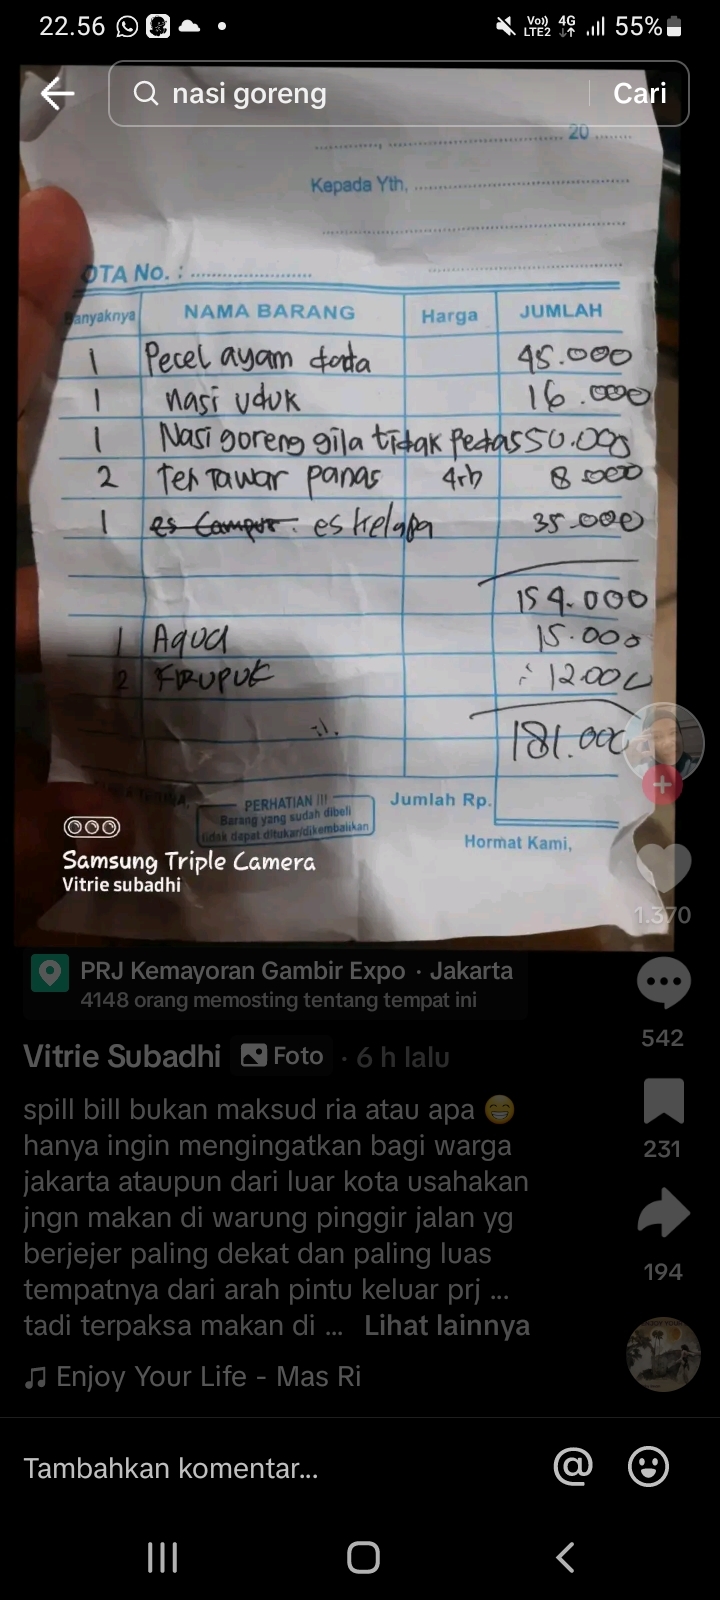 22.56
Vo)) LTE2 4G 55%
nasi goreng
Cari
20
Kepada Yth,
OTA No. :
anyaknya NAMA BARANG Harga JUMLAH
1 Pecel ayam dada 45.000
1 nasi uduk 16.000
1 Nasi goreng gila tidak Pedas 50.000
2 Teh Tawar panas 4rb 8.000
1 es Campur es kelapa 35.000
154.000
1 Aqua 15.000
2 KRUPUK 12.000
181.000
PERHATIAN !!!
Barang yang sudah dibeli
tidak dapat ditukar/dikembalikan
Jumlah Rp.
Hormat Kami,
Samsung Triple Camera
Vitrie subadhi
1.370
PRJ Kemayoran Gambir Expo · Jakarta
4148 orang memosting tentang tempat ini
542
Vitrie Subadhi Foto · 6 h lalu
spill bill bukan maksud ria atau apa 😁
hanya ingin mengingatkan bagi warga
jakarta ataupun dari luar kota usahakan
231
jngn makan di warung pinggir jalan yg
berjejer paling dekat dan paling luas
194
tempatnya dari arah pintu keluar prj ...
tadi terpaksa makan di ... Lihat lainnya
Enjoy Your Life - Mas Ri
Tambahkan komentar...
@